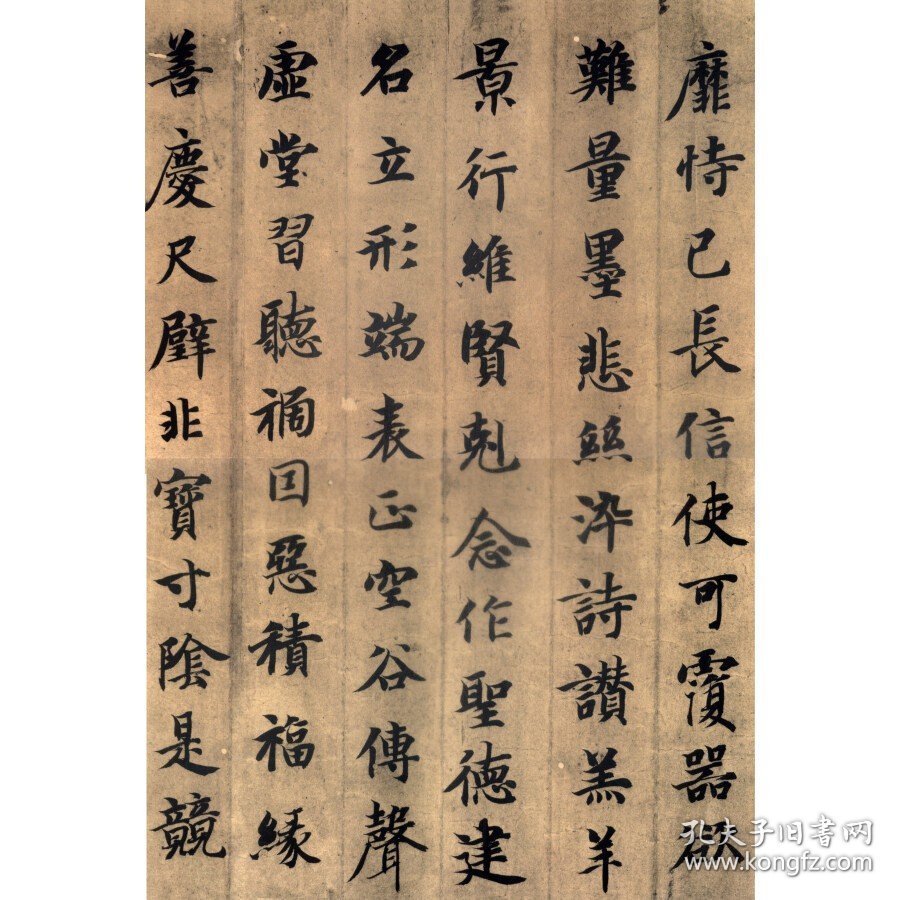 靡恃已長信使可覆器欲
難量墨悲絲染詩讃羔羊
景行維賢剋念作聖德建
名立形端表正空谷傳聲
虛堂習聽禍因惡積福緣
善慶尺璧非寶寸陰是競
孔夫子旧书网
www.kongfz.com